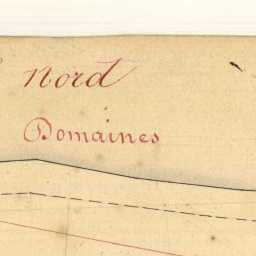 Nord
Domaines